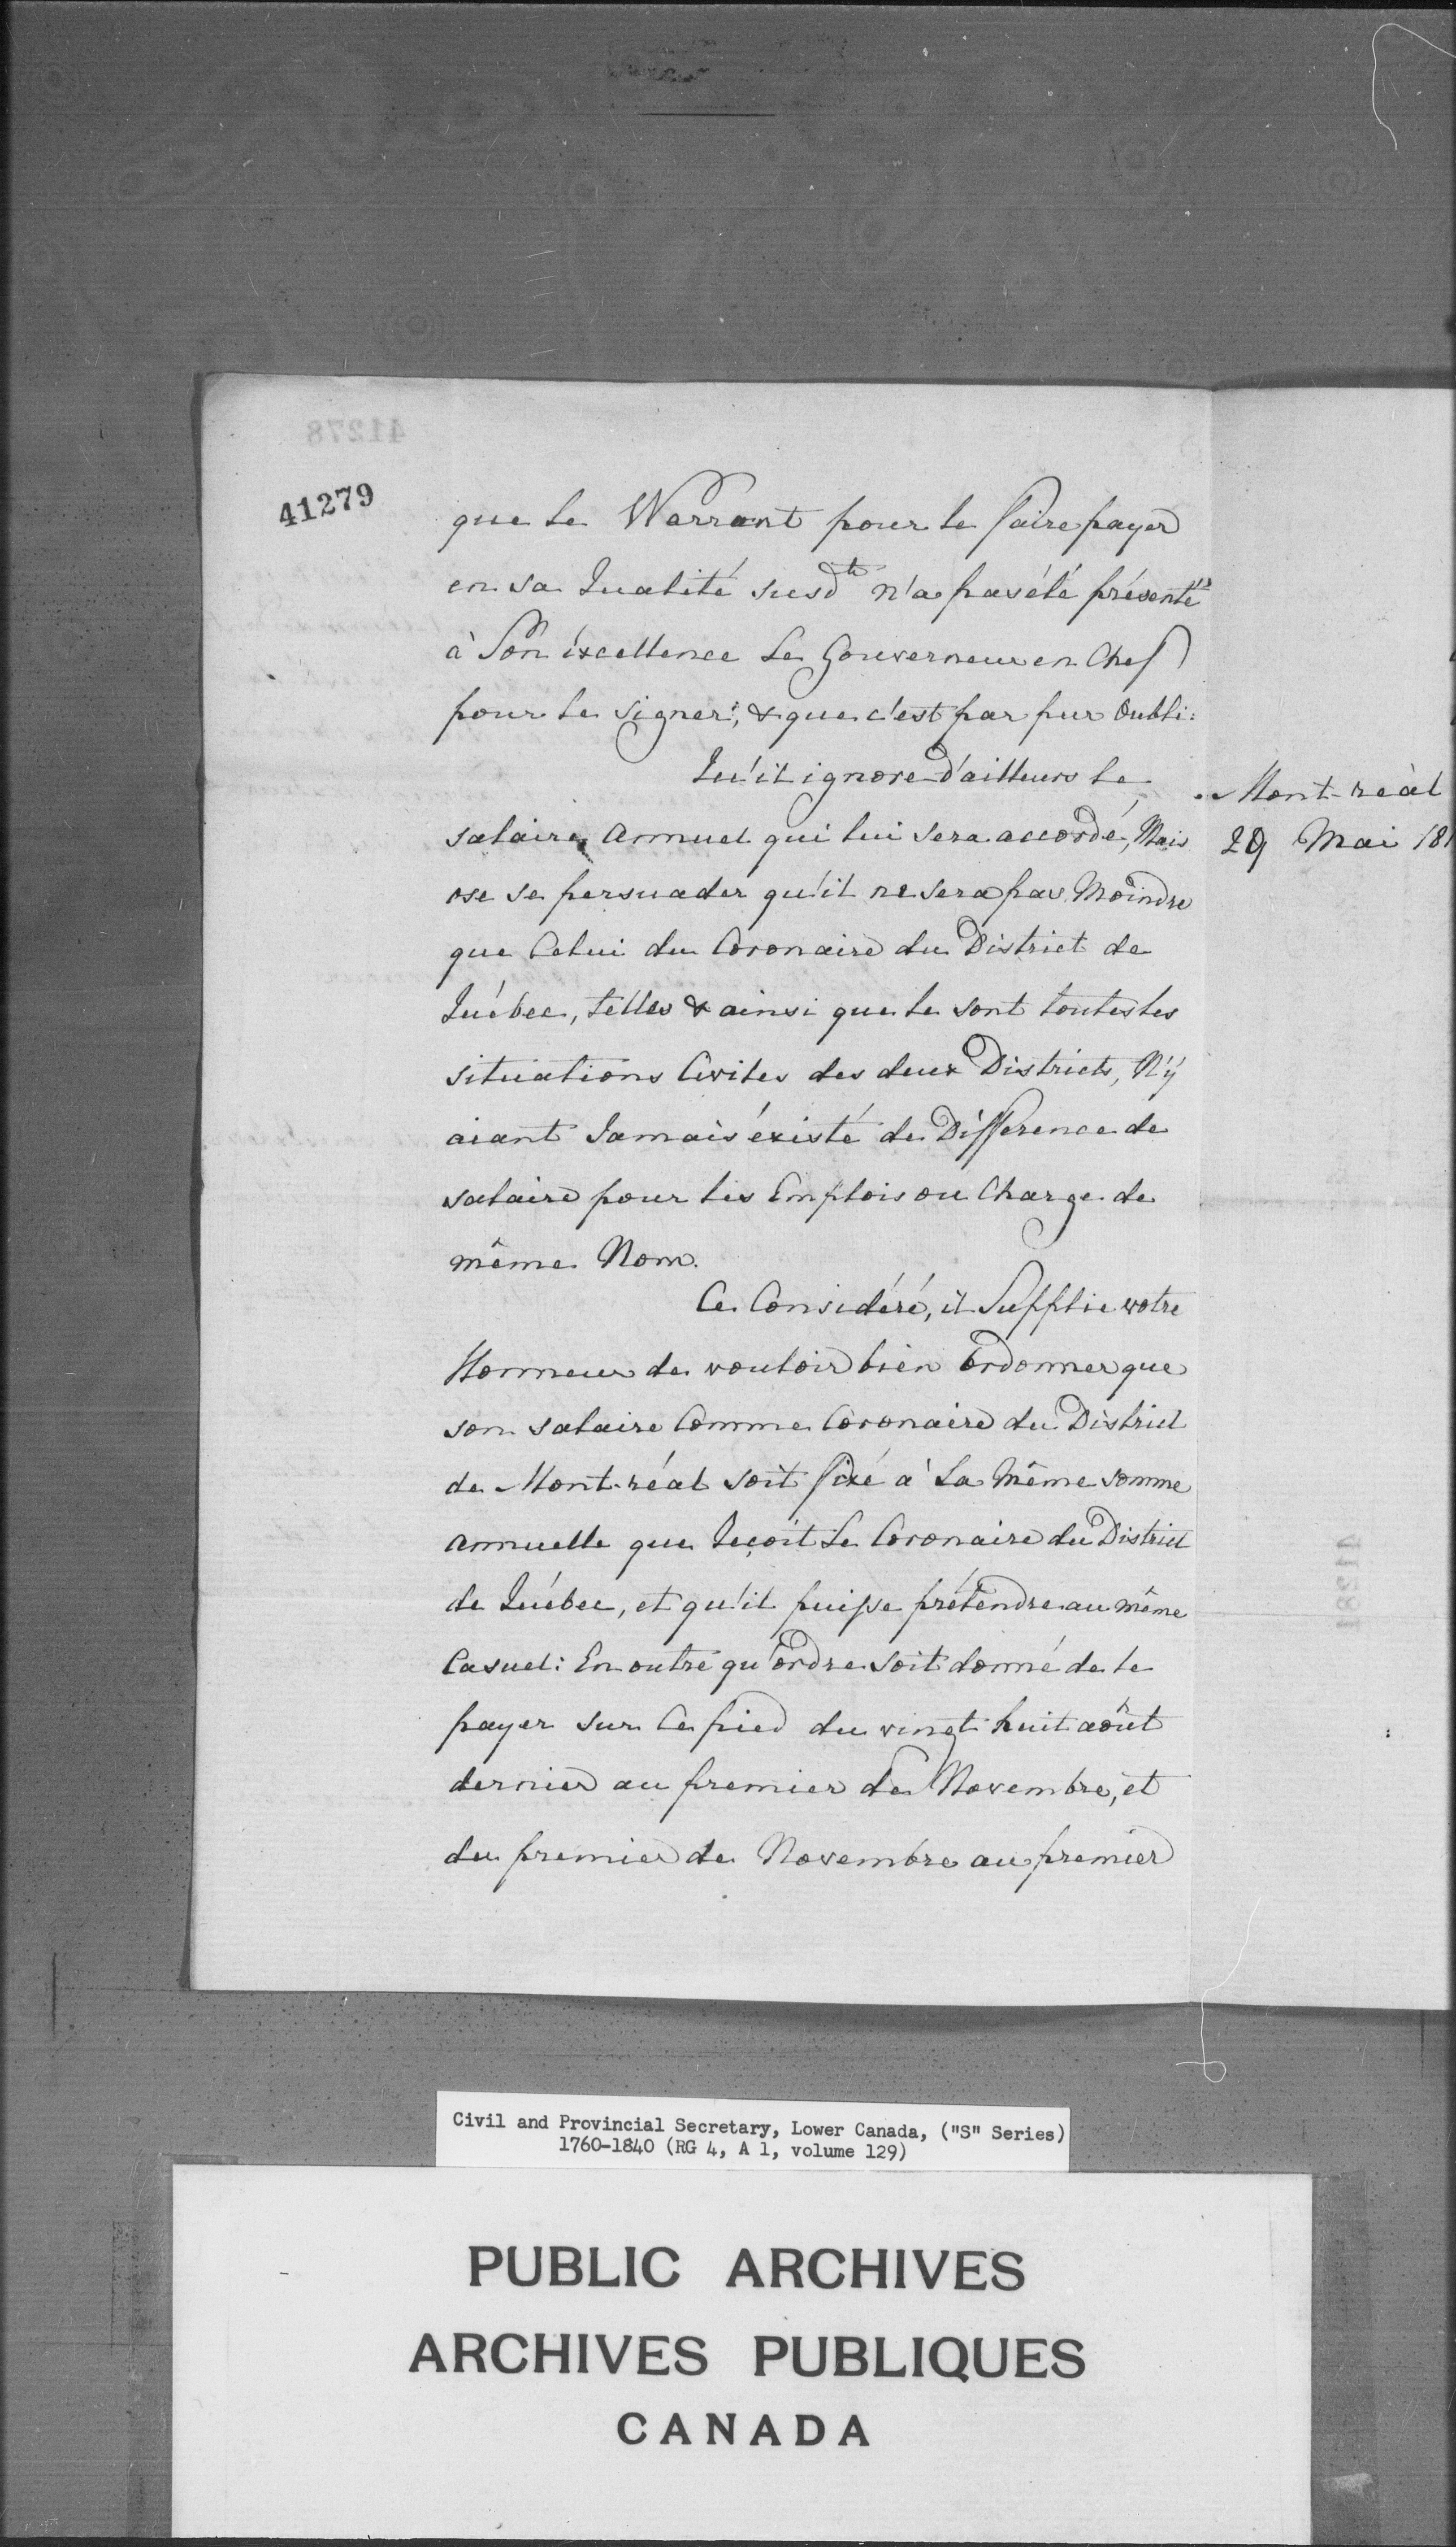 41278
41279
que le Warrant pour le faire payer
en sa Qualité susdte n'a pas été présenté
à Son éxcellence Le Gouverneur en Chef
pour le signer; & que c'est par pur Oubli:
Qu'il ignore d'ailleurs le
salaire annuel qui lui sera accordé, Mais
ose se persuader qu'il ne sera pas Moindre
que Celui du Coronaire du District de
Québec, telles & ainsi que le sont toutes les
situations Civiles des deux Districts, N'ÿ
aiant Jamais éxisté de Difference de
salaire pour les Emplois ou Charge de
même Nom.
Ce Considéré, il Supplie votre
Honneur de vouloir bien Ordonner que
son salaire Comme Coronaire du District
de Mont-réal soit fixé à La Même somme
annuelle que reçoit Le Coronaire du District
de Québec, et qu'il puisse prétendre au même
Casuel: En outre qu'ordre soit donné de le
payer sur Ce pied du vingt huit août
dernier au premier de Novembre, et
du premier de Novembre au premier
Mont-réal
29 Mai 181
41281
Civil and Provincial Secretary, Lower Canada, ("S" Series)
1760-1840 (RG 4, A 1, volume 129)
PUBLIC ARCHIVES
ARCHIVES PUBLIQUES
CANADA